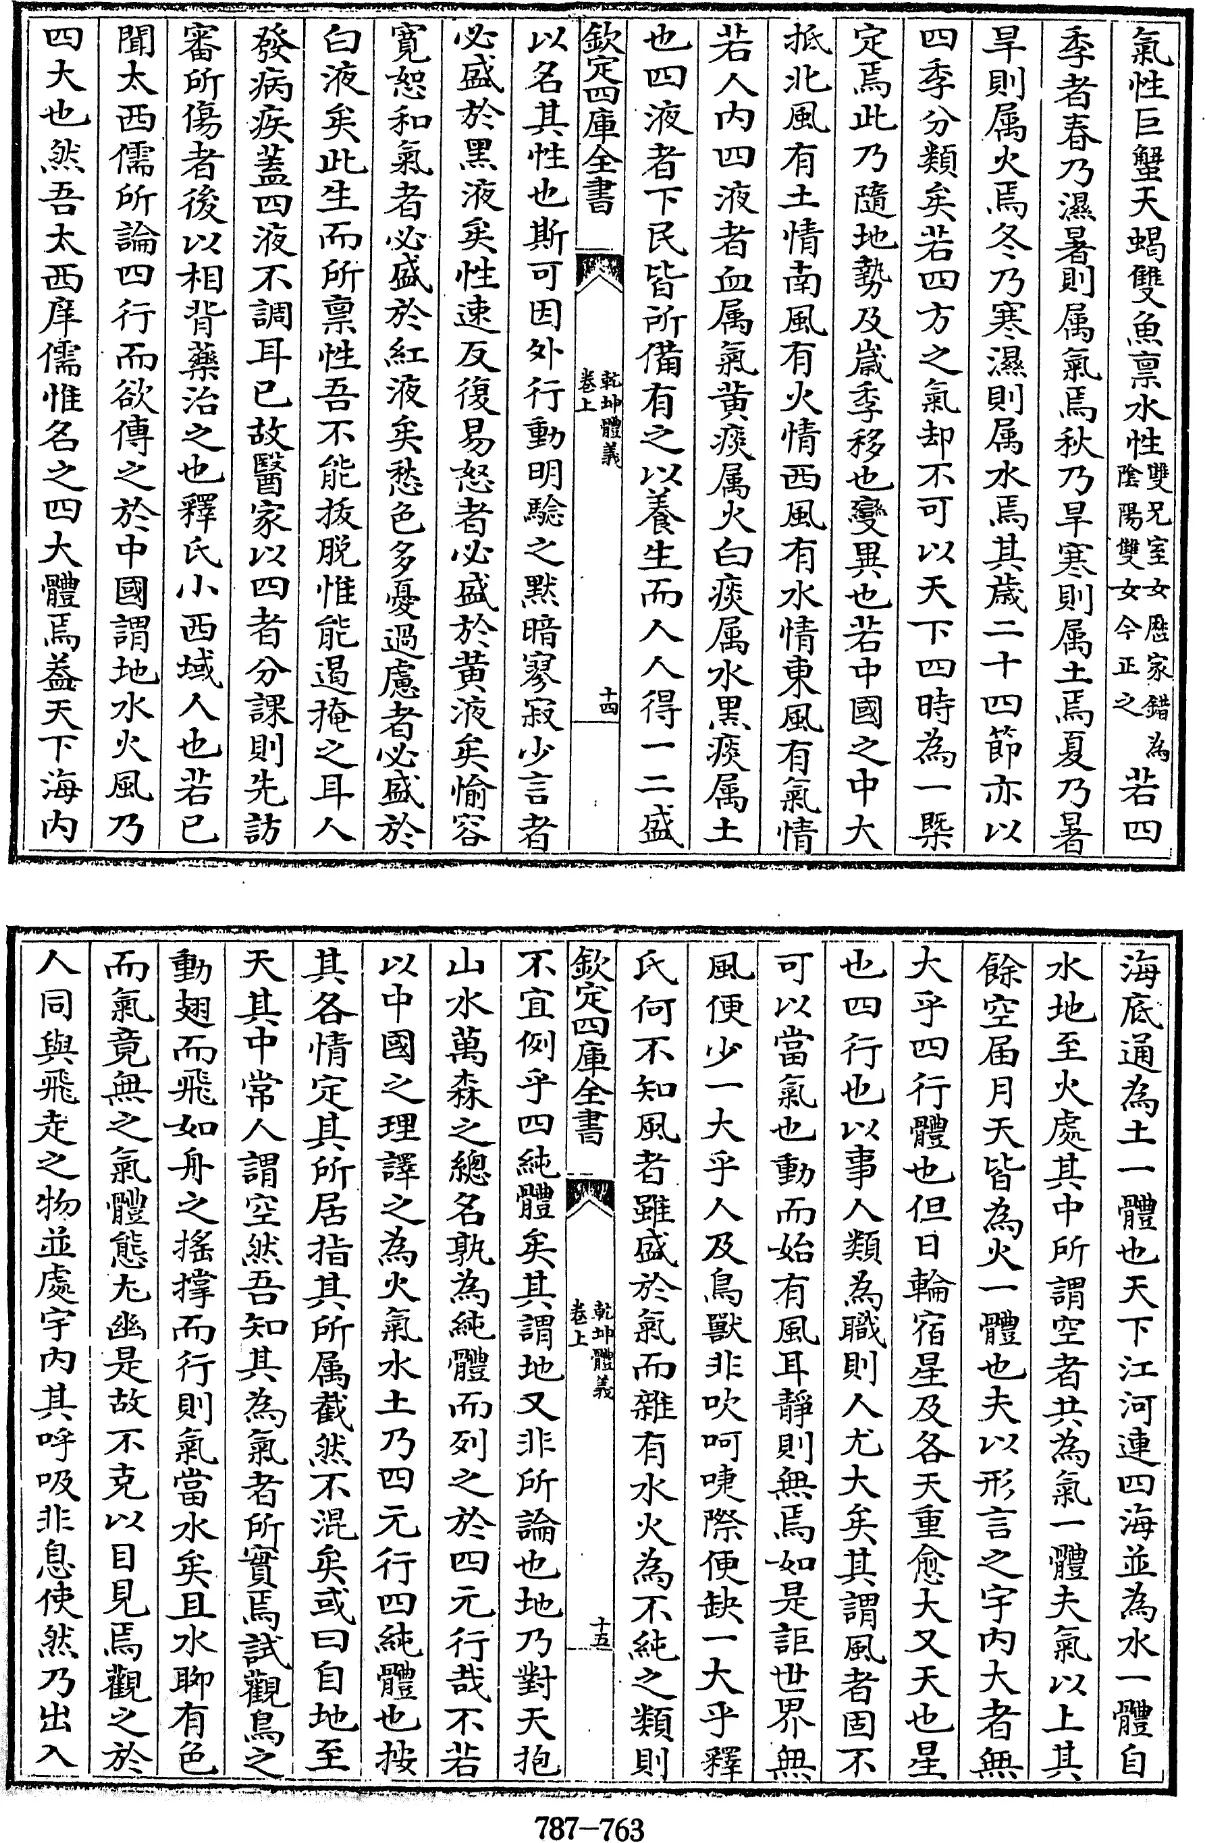 氣性巨蟹天蝎雙魚禀水性雙兄室女厯家錯為陰陽雙女今正之若四
季者春乃濕暑則属氣焉秋乃旱寒則属土焉夏乃暑
旱則属火焉冬乃寒濕則属水焉其歳二十四節亦以
四季分類矣若四方之氣却不可以天下四時為一槩
定焉此乃隨地勢及歳季移也變異也若中國之中大
抵北風有土情南風有火情西風有水情東風有氣情
若人内四液者血属氣黄痰属火白痰属水黒痰属土
也四液者下民皆所備有之以養生而人人得一二盛
欽定四庫全書
乾坤體義
卷上
十四
以名其性也斯可因外行動明驗之默暗寥寂少言者
必盛於黒液矣性速反復易怒者必盛於黄液矣愉容
寛恕和氣者必盛於紅液矣愁色多憂過慮者必盛於
白液矣此生而所禀性吾不能拔脱惟能遏掩之耳人
發病疾蓋四液不調耳已故醫家以四者分課則先訪
審所傷者後以相背藥治之也釋氏小西域人也若已
聞太西儒所論四行而欲傳之於中國謂地水火風乃
四大也然吾太西庠儒惟名之四大體焉葢天下海内
海底通為土一體也天下江河連四海並為水一體自
水地至火處其中所謂空者共為氣一體夫氣以上其
餘空届月天皆為火一體也夫以形言之宇内大者無
大乎四行體也但日輪宿星及各天重愈大又天也星
也四行也以事人類為職則人尤大矣其謂風者固不
可以當氣也動而始有風耳靜則無焉如是詎世界無
風便少一大乎人及鳥獸非吹呵唓際便缺一大乎釋
氏何不知風者雖盛於氣而雜有水火為不純之類則
欽定四庫全書
乾坤體義
卷上
十五
不宜例乎四純體矣其謂地又非所論也地乃對天抱
山水萬森之總名孰為純體而列之於四元行哉不若
以中國之理譯之為火氣水土乃四元行四純體也按
其各情定其所居指其所属截然不混矣或曰自地至
天其中常人謂空然吾知其為氣者所實焉試觀鳥之
動翅而飛如舟之搖撑而行則氣當水矣且水聊有色
而氣竟無之氣體態尤幽是故不克以目見焉觀之於
人同與飛走之物並處宇内其呼吸非息使然乃出入
787-763